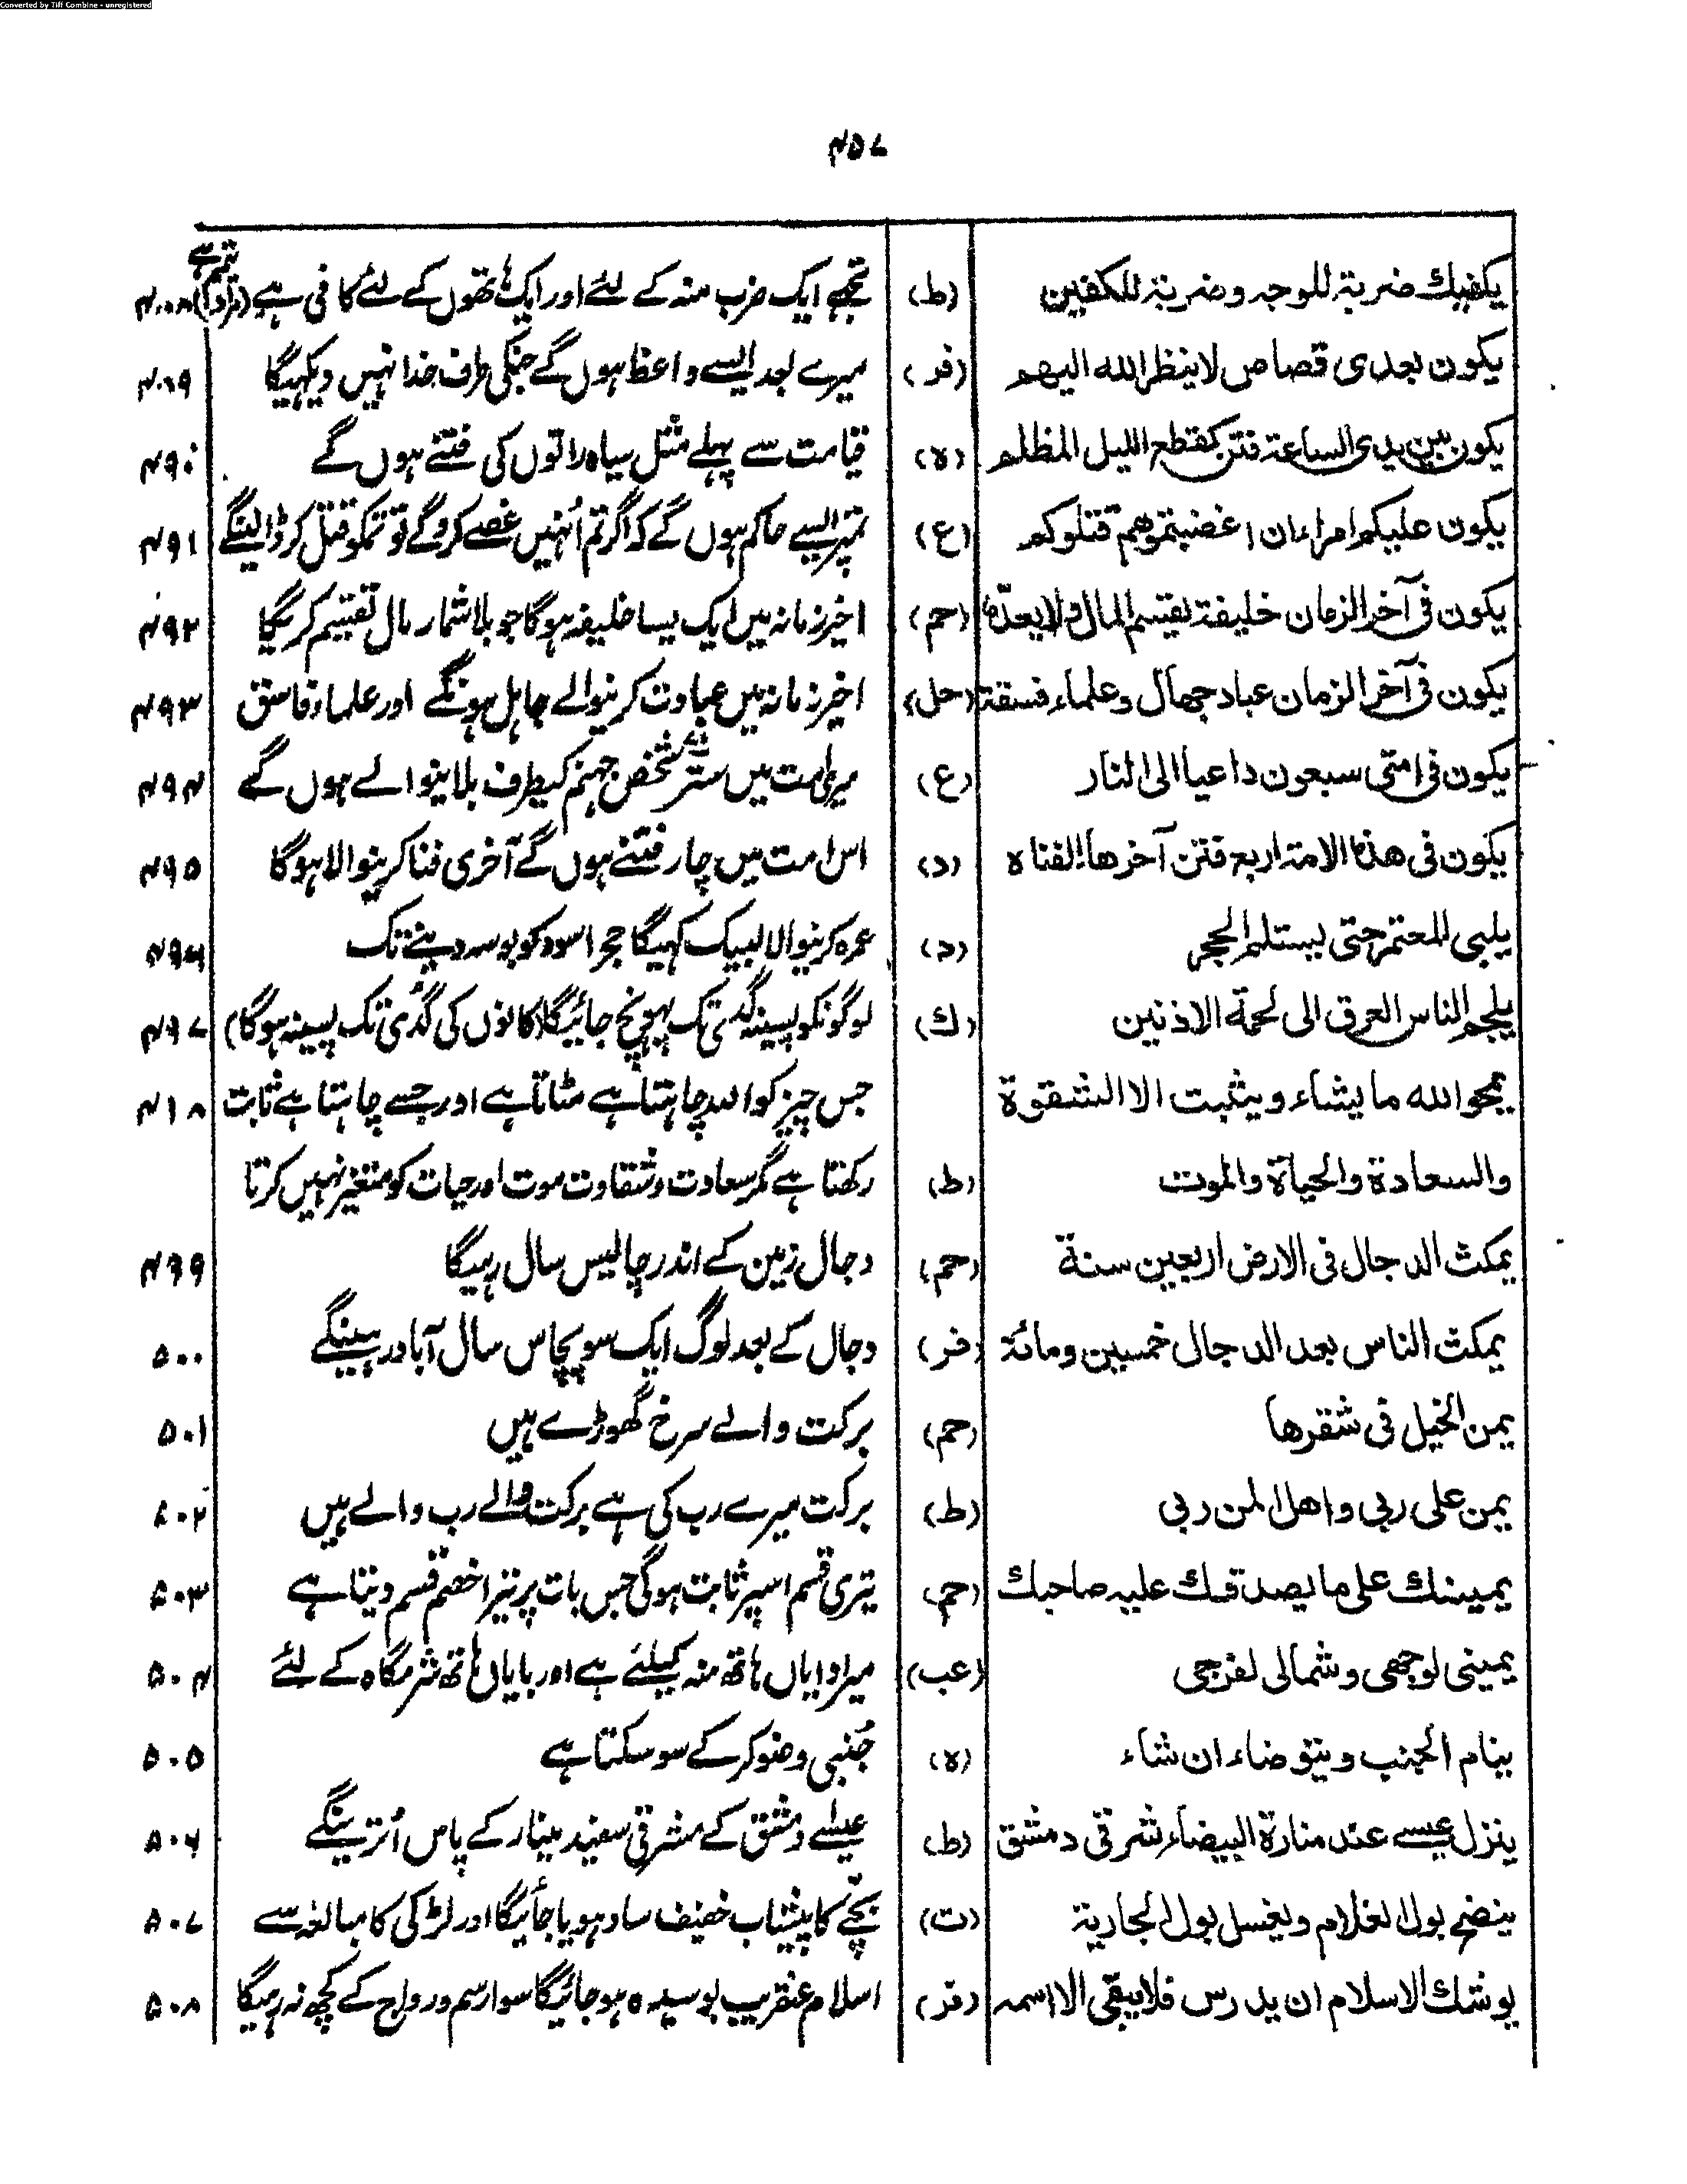 Converted by Tiff Combine - unregistered
۴۵۷
یکفیك ضربة للوجه وضربة للکفین (ط) تجھے ایک ضرب منہ کے لئے اور ایک ہاتھوں کے لئے کافی ہے (مراد تیمم ہے) ۴۰۸
یکون بعدی قصاص لاینظر الله الیهم (فر) میرے بعد ایسے واعظ ہوں گے جنکی طرف خدا نہیں دیکھیگا ۴۸۹
یکون بین یدی الساعة فتن کقطع اللیل المظلم (ہ) قیامت سے پہلے مثل سیاہ راتوں کی فتنے ہوں گے ۴۹۰
یکون علیکم امراء ان اغضبتموهم قتلوکم (ع) تمپر ایسے حاکم ہوں گے کہ اگر تم اُنہیں غصے کروگے تو تمکو قتل کر ڈالینگے ۴۹۱
یکون فی آخر الزمان خلیفة یقسم المال ولا یعدّہ (حم) اخیر زمانہ میں ایک یسا خلیفہ ہوگا جو بلا شمار مال تقسیم کریگا ۴۹۲
یکون فی آخر الزمان عباد جهال وعلماء فسقة (حل) اخیر زمانہ میں عبادت کرنیوالے جاہل ہونگے اور علماء فاسق ۴۹۳
یکون فی امتی سبعون داعیا الی النار (ع) میری امت میں ستر شخص جہنم کیطرف بلانیوالے ہوں گے ۴۹۴
یکون فی هذہ الامة اربع فتن آخرها الفناء (د) اس امت میں چار فتنے ہوں گے آخری فنا کرنیوالا ہوگا ۴۹۵
یلبی المعتمر حتی یستلم الحجر (د) عمرہ کرنیوالا لبیک کہیگا حجر اسود کو بوسہ دینے تک ۴۹۶
یلجم الناس العرق الی لحمة الاذنین (ك) لوگونکو پسینہ گدی تک پہونچ جائیگا (کانوں کی گدّی تک پسینہ ہوگا) ۴۹۷
یمحو الله ما یشاء ویثبت الا الشقوة جس چیز کو اللہ چاہتا ہے مٹاتا ہے اور جسے چاہتا ہے ثابت ۴۱۸
والسعادة والحیاة والموت (ط) رکھتا ہے مگر سعادت وشقاوت موت اور حیات کو متغیر نہیں کرتا
یمکث الدجال فی الارض اربعین سنة (حم) دجال زمین کے اندر چالیس سال رہیگا ۴۹۹
یمکث الناس بعد الدجال خمسین ومائة (فر) دجال کے بعد لوگ ایک سو پچاس سال آباد رہینگے ۵۰۰
یمن الخیل فی شقرها (حم) برکت والے سرخ گھوڑے ہیں ۵۰۱
یمن علی ربی واهل المن ربی (ط) برکت میرے رب کی ہے برکت والے رب والے ہیں ۵۰۲
یمینك علی ما یصدقك علیه صاحبك (حم) تیری قسم اسپر ثابت ہوگی جس بات پر تیرا خصم قسم دیتا ہے ۵۰۳
یمینی لوجهی وشمالی لفرجی (عب) میرا دایاں ہاتھ منہ کیلئے ہے اور بایاں ہاتھ شرمگاہ کے لئے ۵۰۴
ینام الجنب ویتوضاء ان شاء (ہ) جُنبی وضو کر کے سو سکتا ہے ۵۰۵
ینزل عیسے عند منارة البیضاء شرقی دمشق (ط) عیسٰے دمشق کے مشرقی سفید مینار کے پاس اُترینگے ۵۰۶
ینضح بول الغلام ویغسل بول الجاریة (ت) بچّے کا پیشاب خفیف سا دہویا جائیگا اور لڑکی کا مبالغہ سے ۵۰۷
یوشك الاسلام ان یدرس فلا یبقی الا اسمه (فر) اسلام عنقریب بوسیدہ ہو جائیگا سوا رسم و رواج کے کچھ نہ رہیگا ۵۰۸